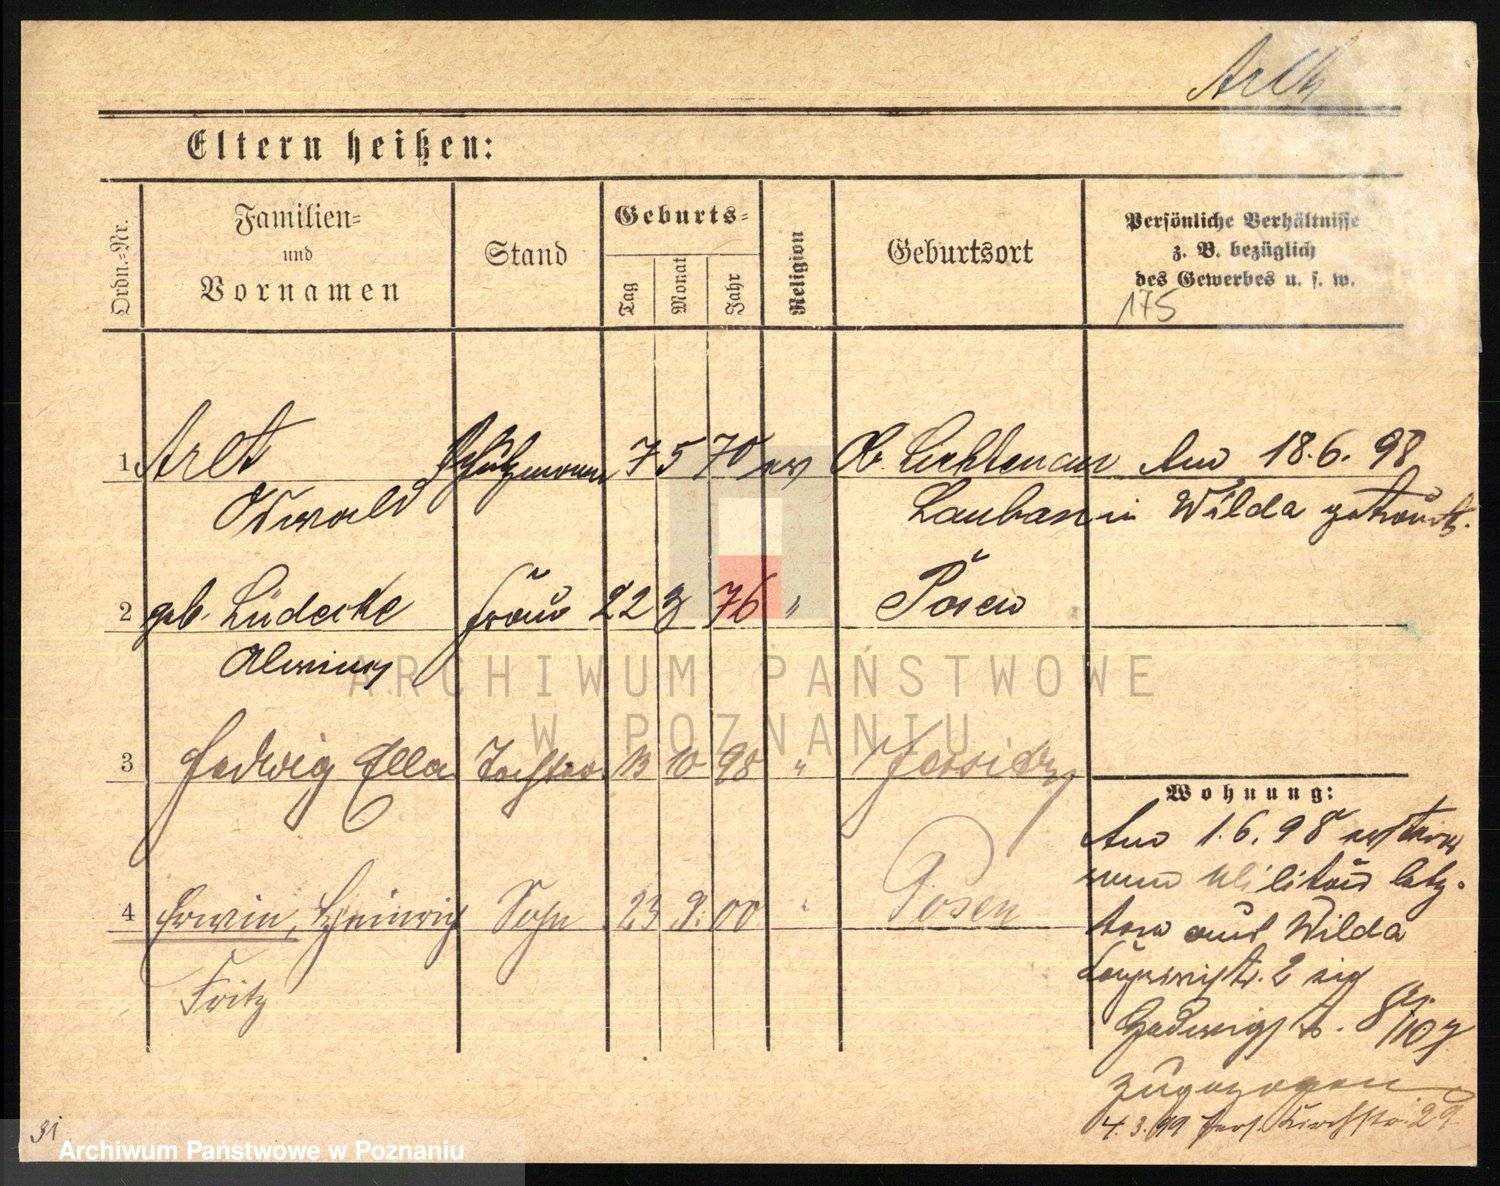 Arlt
Eltern heißen:
Ordn.-Nr.
Familien-
und
Vornamen
Stand
Geburts-
Tag
Monat
Jahr
Religion
Geburtsort
Persönliche Verhältnisse
z. B. bezüglich
des Gewerbes u. s. w.
175
1 Arlt Schutzmann 7 5 70 ev Ob. Lichtenau Am 18.6.98
Oswald Lauban in Wilda getraut.
2 geb. Lüdecke Frau 22 3 76 " Posen
Alwine
3 Hedwig Ella Tochter 13 10 98 " Jersitz
Wohnung:
Am 1.6.98
vom Militär letz-
4 Erwin, Heinrich Sohn 23 9. 00 " Posen
ten aus Wilda
Fritz
2
Hedwigstr. 8
zugezogen
4.3.99 Jers. Kirchstr. 29
31
ARCHIWUM PAŃSTWOWE
W POZNANIU
Archiwum Państwowe w Poznaniu